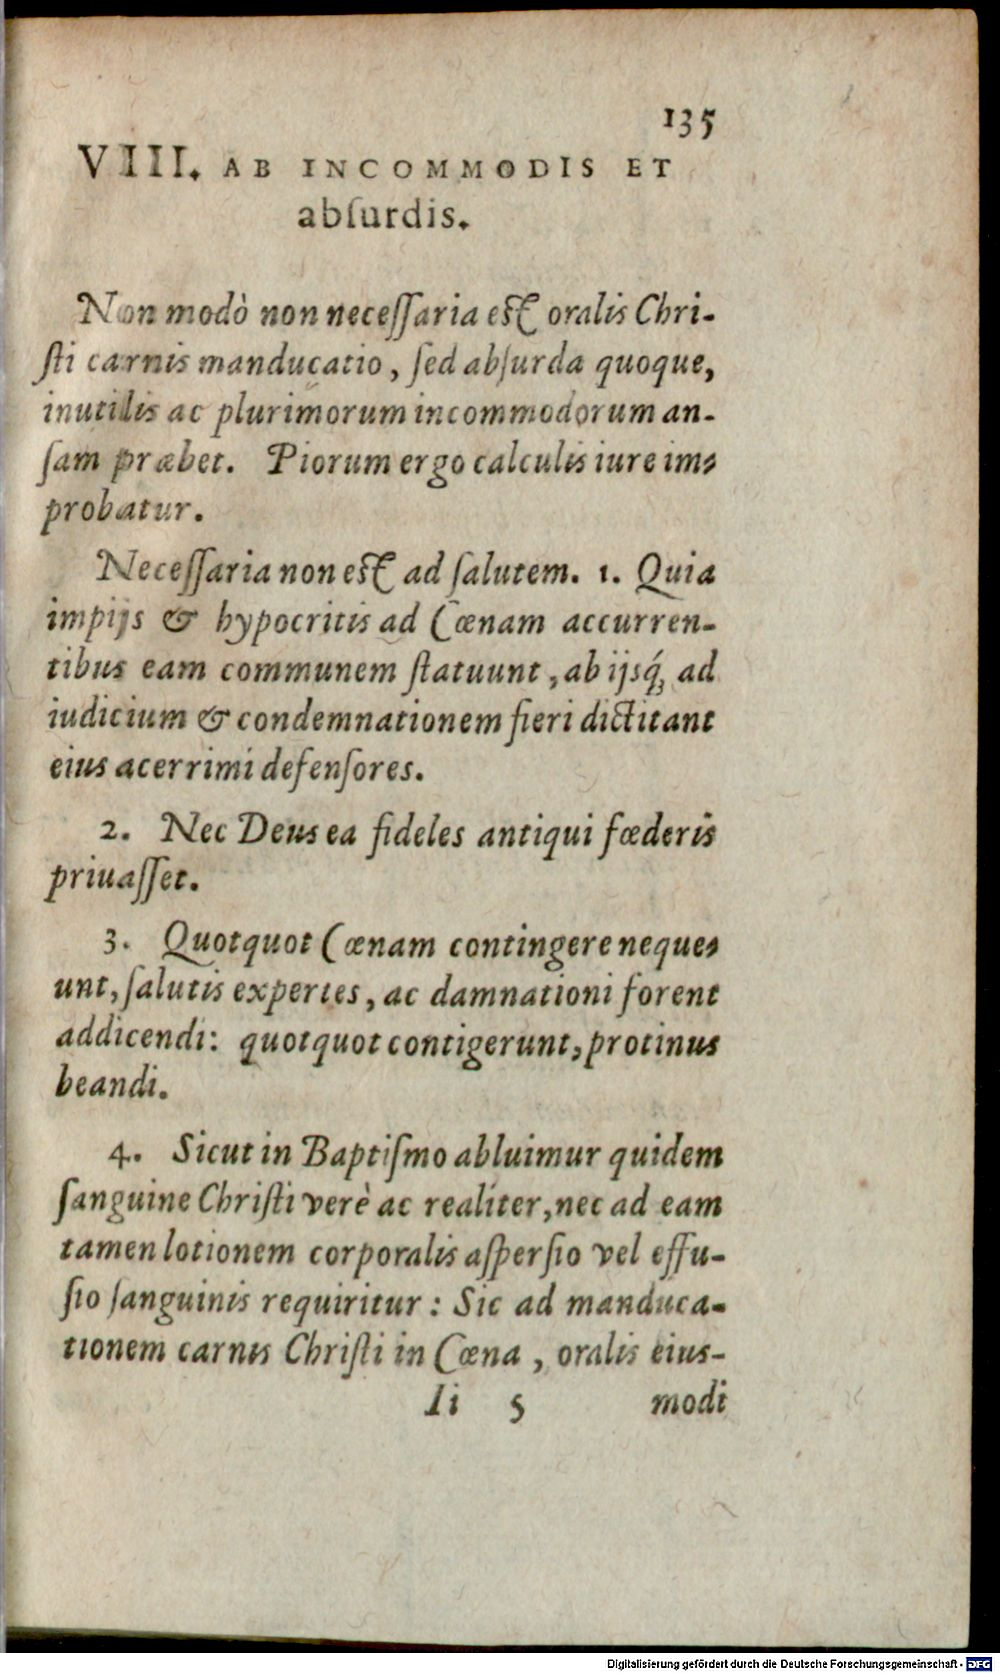 135
VIII. AB INCOMMODIS ET
abſurdis.
Non modò non neceſſaria eſt oralis Chri-
ſti carnis manducatio, ſed abſurda quoque,
inutilis ac plurimorum incommodorum an-
ſam præbet. Piorum ergo calculis iure im-
probatur.
Neceſſaria non eſt ad ſalutem. 1. Quia
impijs & hypocritis ad Cœnam accurren-
tibus eam communem ſtatuunt, ab ijsq́; ad
iudicium & condemnationem fieri dictitant
eius acerrimi defenſores.
2. Nec Deus ea fideles antiqui fœderis
priuaſſet.
3. Quotquot Cœnam contingere neque-
unt, ſalutis expertes, ac damnationi forent
addicendi: quotquot contigerunt, protinus
beandi.
4. Sicut in Baptiſmo abluimur quidem
ſanguine Chriſti verè ac realiter, nec ad eam
tamen lotionem corporalis aſperſio vel effu-
ſio ſanguinis requiritur: Sic ad manduca-
tionem carnis Chriſti in Cœna, oralis eius-
Ii 5 modi
Digitalisierung gefördert durch die Deutsche Forschungsgemeinschaft - DFG